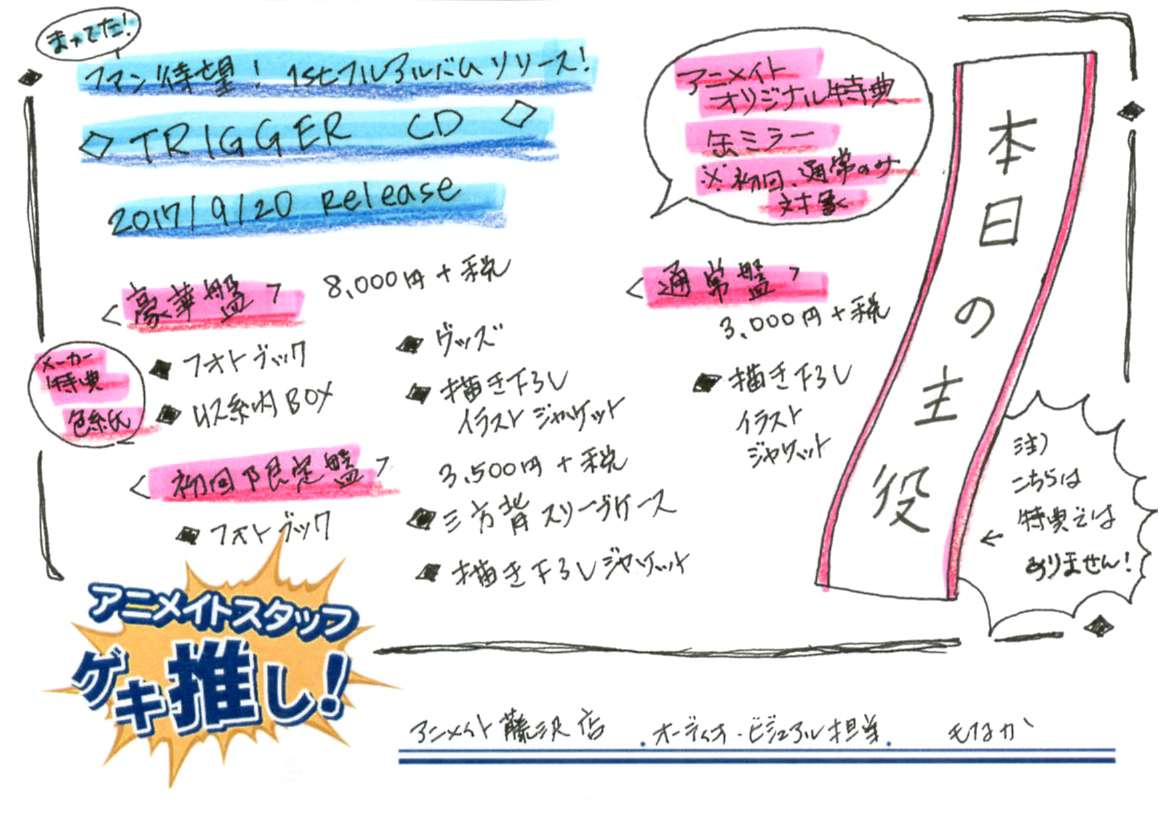 まってた!
ファン待望! 1stフルアルバムリリース!
◇TRIGGER CD◇
2017/9/20 Release
アニメイト
オリジナル特典
缶ミラー
※初回、通常のみ
対象
<豪華盤> 8,000円+税
メーカー
特典
色紙
◆フォトブック
◆収納BOX
◆グッズ
◆描き下ろし
イラストジャケット
<初回限定盤> 3,500円+税
◆フォトブック
◆三方背スリーブケース
◆描き下ろしジャケット
<通常盤>
3,000円+税
◆描き下ろし
イラスト
ジャケット
本日の主役
注)
こちらは
特典では
ありません!
←
アニメイトスタッフ
ゲキ推し!
アニメイト藤沢店 . オーディオ・ビジュアル担当. もなか